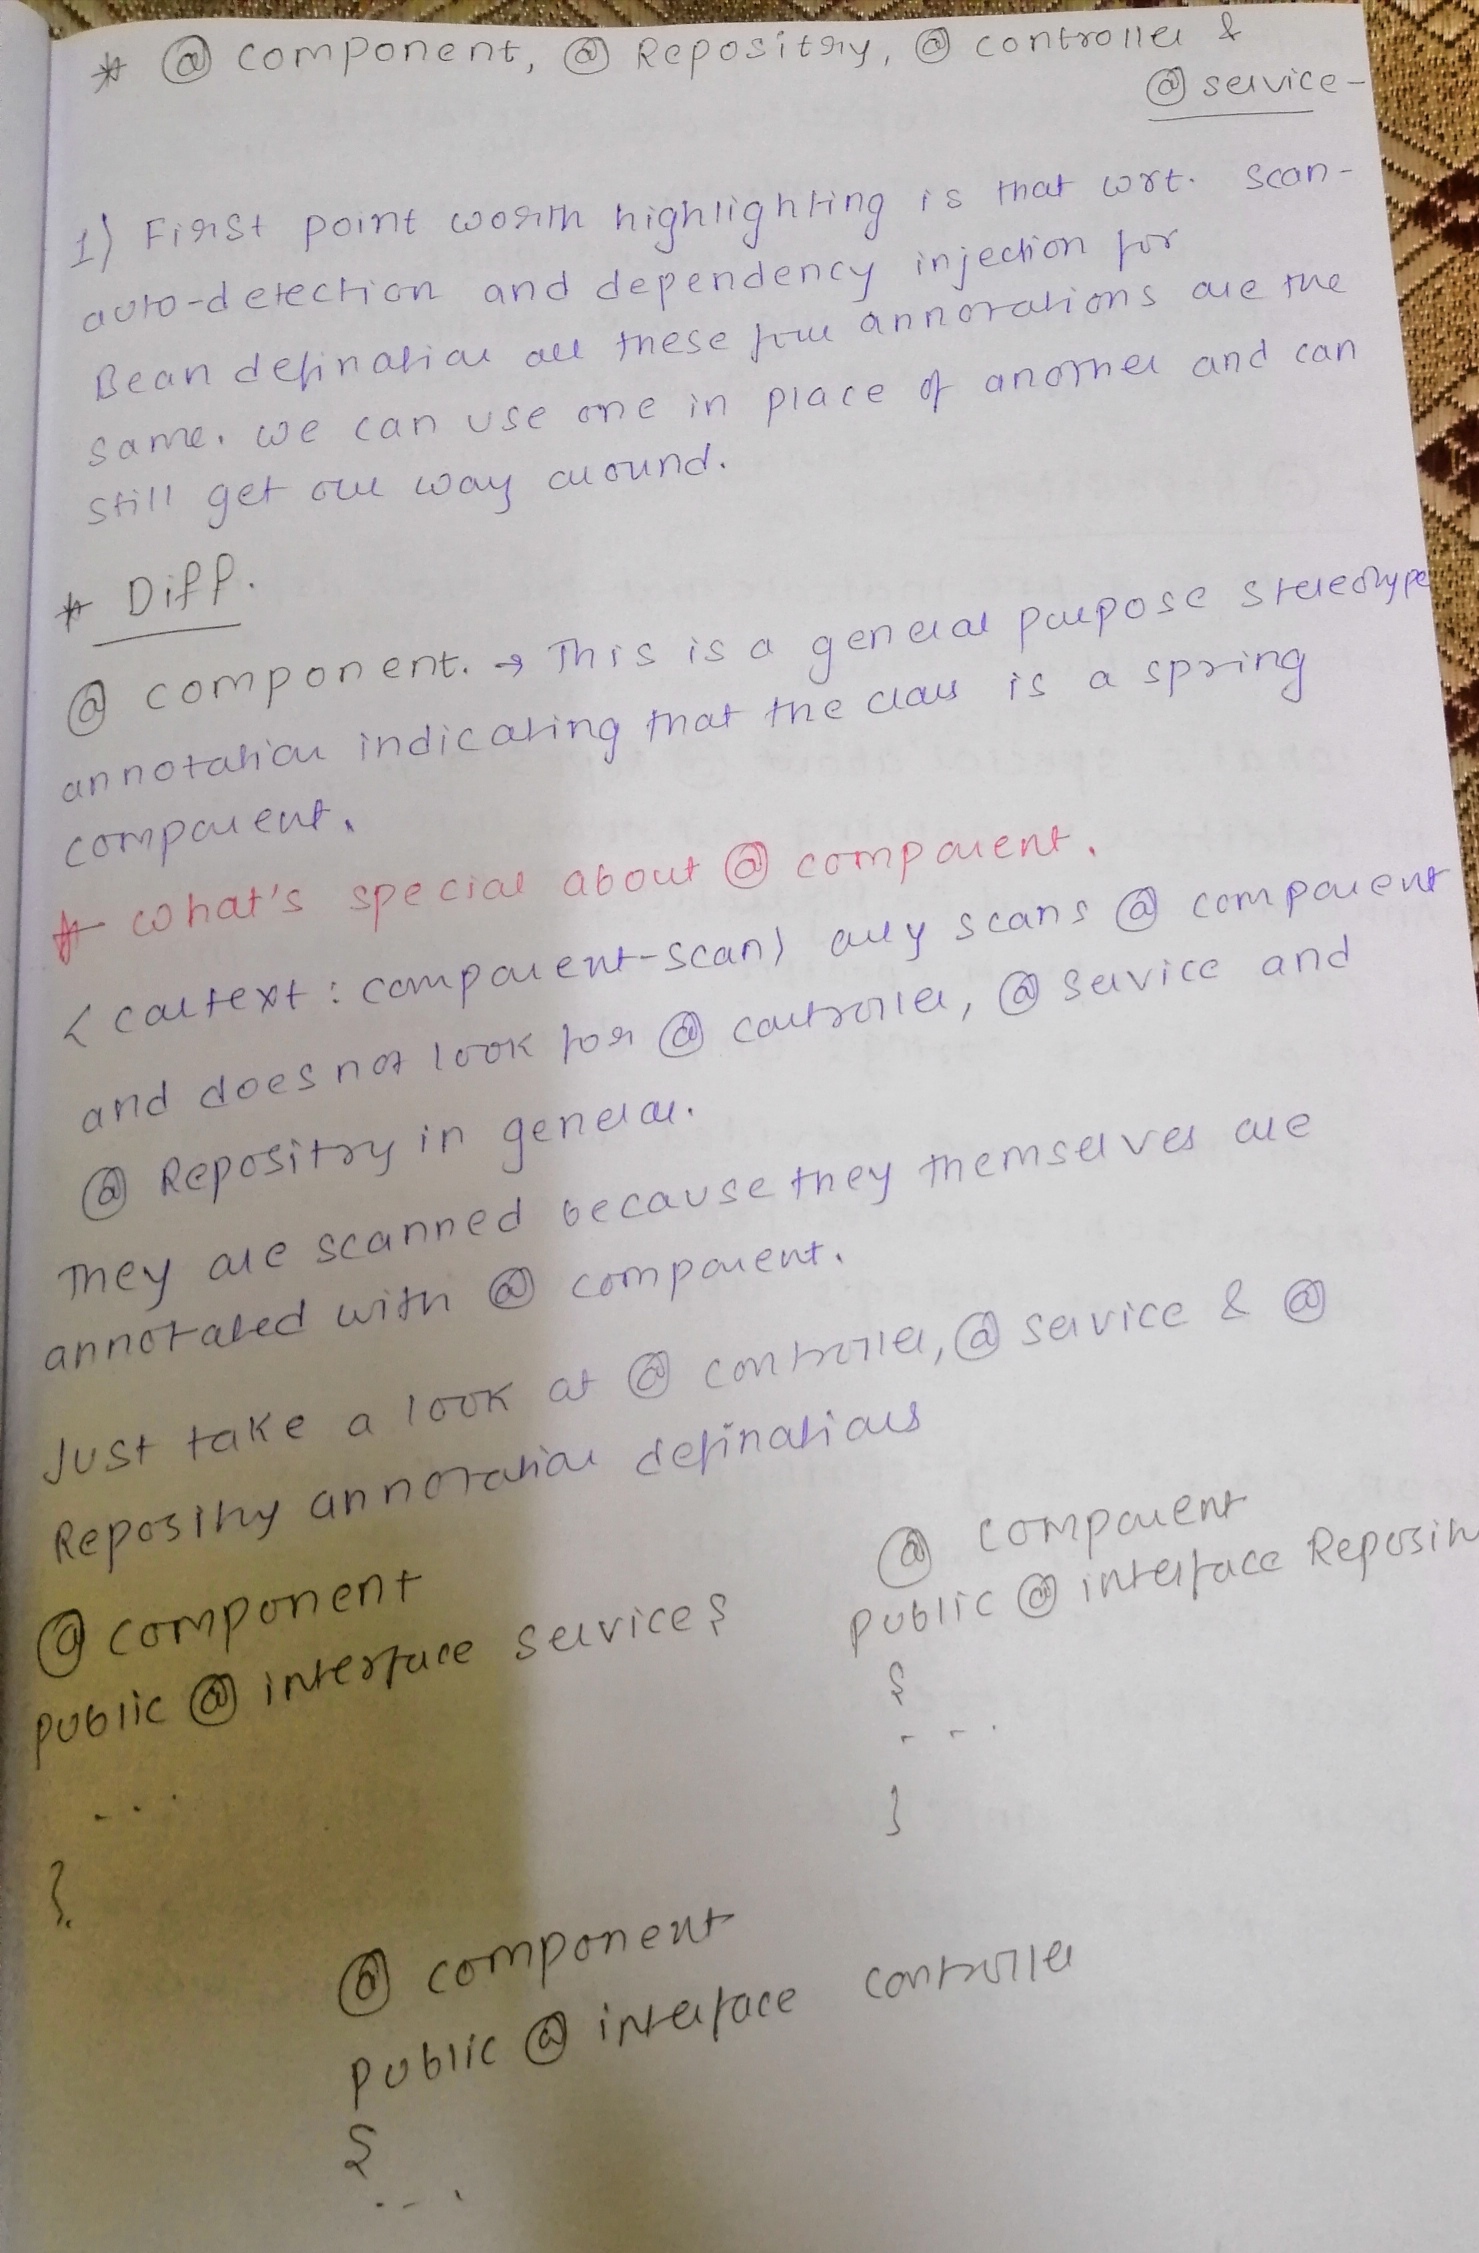 * @ component, @ Repositry, @ controller &
@ service -
1) First point worth highlighting is that wrt. scan-
auto-detection and dependency injection for
Bean defination all these four annotations are the
same. we can use one in place of another and can
still get our way around.
* Diff.
@ component. → This is a general purpose stereotype
annotation indicating that the class is a spring
component.
* what's special about @ component.
< context : component-scan) only scans @ component
and does not look for @ controller, @ Service and
@ Repositry in general.
They are scanned because they themselves are
annotated with @ component.
Just take a look at @ controller, @ service & @
Repositry annotation definations
@ component
public @ interface service {
...
}
@ component
public @ interface Reposi
{
...
}
@ component
public @ interface controller
{
...